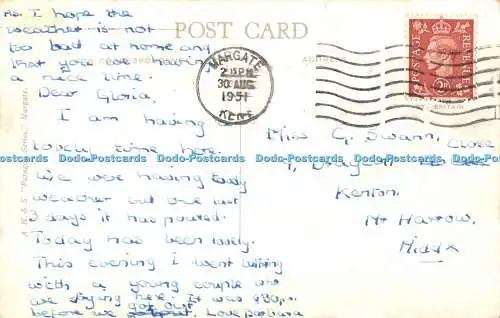 P.S. I hope the
weather is not
too bad at home and
that you are having
a nice time.
POST CARD
ADDRESS
MARGATE
2 15 PM
30 AUG
1951
KENT
POSTAGE
REVENUE
A. H. & S. "Paragon" Series. Margate.
Dear Gloria,
I am having
lovely time here.
We were having lovely
weather but the last
3 days it has poured.
Today has been lovely.
This evening I went
with a young couple who
are staying here. It was 9.30 p.m.
before we got out. Love Barbara
Miss G. Swann,
7, Close
Kenton,
Nr Harrow,
Middx
Dodo-Postcards Dodo-Postcards Dodo-Postcards Dodo-Postcards Dodo-Postcards Dodo-Postcards Dodo-Postcards